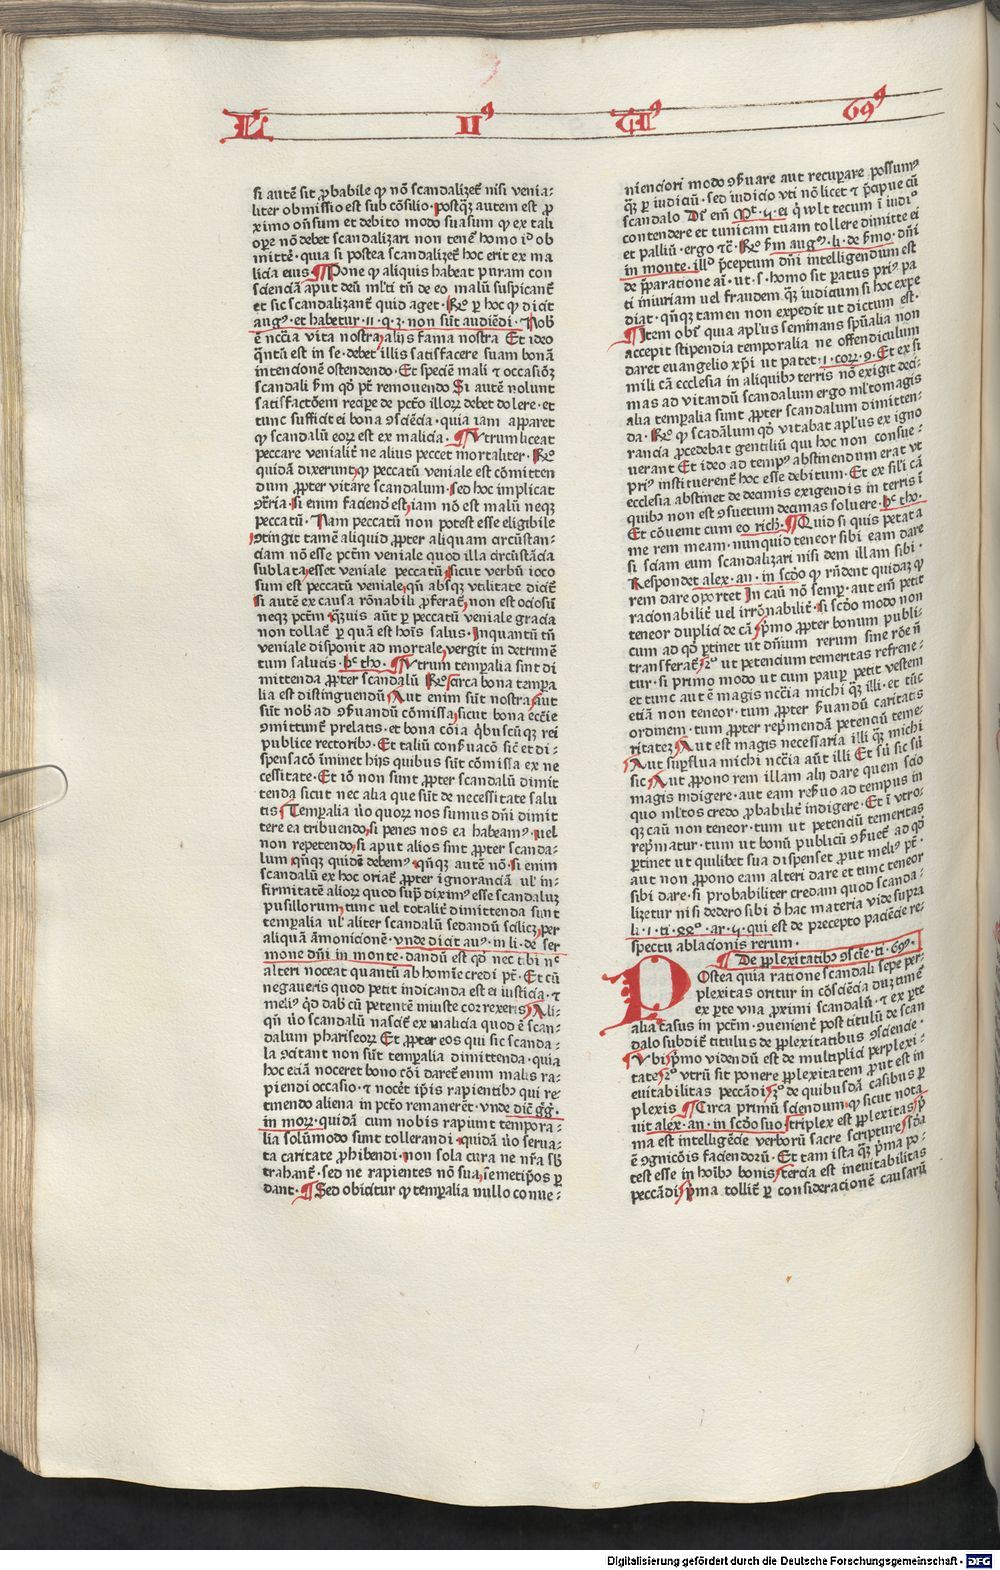 Li IIꝰ Tiꝰ 69ꝰ
si autē sit ꝓbabile ꝙ nō scandalizet᷑ nisi venia⸗
liter obmissio est sub cōsilio·postq̄ȝ autem est ꝓ
ximo oñsum et debito modo suasum ꝙ ex tali
oꝑe nō debet scandalizari non teneť homo id ob
mittē·quia si postea scandalizeť hoc erit ex ma
licia eius ¶Pone ꝙ aliquis habeat puram con
scienciā aput deū ml̄ti tn̄ de eo malū suspicant᷑
et sic scandalizant᷑ quid aget·Rꝰ ꝑ hoc ꝙ dicit
augꝰ·et habetur·11·q·3·non sūt audiēdi·Nob̄
ē nccīa vita nostra alijs fama nostra Et ideo
q̄ntū est in se·debet illis satisfacere suam bonā
intencionē ostendendo·Et speciē mali ⁊ occasiōȝ
scandali ẜm qō pt̄ removendo Si autē nolunt
satisfactōem reciꝑe de pctō illoꝝ debet dolere·et
tunc sufficit ei bona ꝯsciēcia·quia iam apparet
ꝙ scandalū eoꝝ est ex malicia·¶Vtrum liceat
peccare venialit᷑ ne alius peccet mortaliter·Rꝰ
quidā dixerunt ꝙ peccatū veniale est cōmitten
dum ꝓpter vitare scandalum·sed hoc implicat
ꝯtr̄ia·si enim faciend᷒ est iam nō est malū neqȝ
peccatū·Nam peccatū non potest esse eligibile
ꝯtingit tamē aliquid ꝓpter aliquam circūstan⸗
ciam nō esse pctm̄ veniale quod illa circūstācia
sublata esset veniale peccatū sicut verbū ioco
sum est peccatū veniale qn̄ absqȝ vtilitate dicit᷑
si autē ex causa rōnabili ꝓferat᷑ non est ociosū
neqȝ pctm̄·q̄ȝuis aūt ꝑ peccatū veniale gracia
non tollat᷑ ꝑ quā est hoīs salus·Inquantū tn̄
veniale disponit ad mortale vergit in detrimē
tum salutis·h̄ᶜ tho·¶Vtrum temꝑalia sint di
mittenda ꝓpter scandalū Rꝰ circa bona temꝑa
lia est distinguendū Aut enim sūt nostra aut
sūt nob̄ ad ꝯẜuandū cōmissa sicut bona ecc̄ie
ꝯmittunt᷑ prelatis·et bona cōia q̄buscūqȝ rei
publice rectoribȝ·Et taliū conẜuacō sic̄ et di⸗
spensacō īminet hijs quibus sūt cōmissa ex ne
cessitate·Et iō non sunt ꝓpter scandalū dimit
tenda sicut nec alia que sūt de necessitate salu
tis Temꝑalia v̄o quoꝝ nos sumus dn̄i dimit
tere ea tribuendo si penes nos ea habeamꝰ·vel
non repetendo si aput alios sint ꝓpter scanda⸗
lum qn̄qȝ quidē debemꝰ·qn̄qȝ autē nō·si enim
scandalū ex hoc oriat᷑ ꝓpter ignoranciā ul̓ in⸗
firmitatē alioꝝ quod sup̄ diximꝰ esse scandaluȝ
pusilloꝝ tunc vel totalit᷑ dimittenda sunt
temꝑalia ul̓ aliter scandalū sedandū scilicȝ per
aliquā āmonicionē·vnde dicit auꝰ·in li·de ser
mone dn̄i in monte·dandū est qō nec tibi nᶜ
alteri noceat quantū ab homīe credi pt̄·Et cū
negaueris quod petit indicanda est ei iusticia·⁊
meliꝰ q̄d dab̄ cū petentē iniuste correxeris Ali⸗
qn̄ v̄o scandalū nascit᷑ ex malicia quod ē scan⸗
dalum phariseoꝝ Et ꝓpter eos qui sic scanda⸗
la ꝯcitant non sūt temꝑalia dimittenda·quia
hoc eciā noceret bono cōi daret᷑ enim malis ra⸗
piendi occasio·⁊ nocet᷑ ip̄is rapientibȝ qui re⸗
tinendo aliena in pctō remaneret·vnde dic̄ g̅g·
in moꝝ·quidā cum nobis rapiunt tempora⸗
lia solūmodo sunt tollerandi·quidā v̄o serua⸗
ta caritate ꝓhibendi·non sola cura ne nr̄a sb̄
trahant᷑·sed ne rapientes nō sua semetip̄os ꝑ
dant·¶Sed obicitur ꝙ temꝑalia nullo conue⸗
nienciori modo ꝯẜuare aut recuꝑare possumꝰ
q̄ȝ ꝑ iudiciū·sed iudicio vti nō licet ⁊ p̄cipue cū
scandalo Dr̄ em̄ Mᵗ·5·ei q̓ wlt tecum ī iudiᵒ
contendere et tunicam tuam tollere dimitte ei
et palliū·ergo ⁊c̄·Rꝰ ẜm augꝰ·li·de ẜmo·dn̄i
in monte·illᵈ p̄ceptum dn̄i intelligendum est
de p̄paratione aī·ut·s·homo sit ꝑatus priꝰ pa
ti iniuriam uel fraudem q̄ȝ iudicium si hoc expe
diat·qn̄qȝ tamen non expedit ut dictum est·
¶Item obr̄ quia apl̄us seminans spūalia non
accepit stipendia temporalia ne offendiculum
daret euangelio xp̄i ut patet·1·corr·9·Et ex si
mili cā ecclesia in aliquibȝ terris nō exigit deci⸗
mas ad vitandū scandalum ergo ml̄tomagis
alia temꝑalia sunt ꝓpter scandalum dimitten⸗
da·Rꝰ ꝙ scādalum qō vitabat apl̄us ex igno
rancia ꝓcedebat gentiliū qui hoc non consue⸗
uerant Et ideo ad tempꝰ abstinendum erat vt
priꝰ instituerent᷑ hoc esse debitum·Et ex sil̄i cā
ecclesia abstinet de decimis exigendis in terris ī
quibȝ non est ꝯsuetum decimas soluere·h̄ᶜ tho·
Et cōuenit cum eo rich·¶Quid si quis petat a
me rem meam·nunquid teneor sibi eam dare
si sciam eum scandalizari nisi dem illam sibi·
Respondet alex·an·in scd̄o ꝙ rn̄dent quidaȝ ꝙ
rem dare oportet In casū nō semꝑ·aut em̄ petit
racionabilit᷑ vel irrōnabilit᷑·si scd̄o modo non
teneor duplici de cā pᵒmo ꝓpter bonum publi⸗
cum ad qō ꝑtinet ut dn̄ium rerum sine rōe n̄
transferat᷑ 2ᵒ ut petencium temeritas refrene⸗
tur·si primo modo ut cum pauꝑ petit vestem
et tunc aut ē magis nccīa michi q̄ȝ illi·et tūc
etiā non teneor·tum ꝓpter ẜuandū caritatis
ordinem·tum ꝓpter repͥmendā petenciū teme⸗
ritateȝ Aut est magis necessaria illi q̄ȝ michi
Aut suꝑflua michi nccīa aūt illi Et sū sic sū
sic Aut ꝓpono rem illam alij dare quem scio
magis indigere·aut eam reẜuo ad tempus in
quo ml̄tos credo ꝓbabilit᷑ indigere·Et ī vtro⸗
qȝ casū non teneor·tum ut petenciū temeritas
repͥmatur·tum ut bonū publicū ꝯẜuet᷑ ad qō
ꝑtinet ut quilibet sua dispenset ꝓut meliꝰ pt̄·
aut non ꝓpono eam alteri dare et tunc teneor
sibi dare·si probabiliter credam quod scanda⸗
lizetur nisi dedero sibi d̄ hac materia vide supra
li·1·ti·ꝝꝰ·ar·5·qui est de precepto paciēcie re⸗
spectu ablacionis rerum·
¶De ꝑplexitatibȝ ꝯscīe·ti·69ꝰ·
POstea quia ratione scandali sepe per⸗
plexitas oritur in cōsciēcia duȝ timet᷑
ex ꝑte vna ꝓximi scandalū·⁊ ex ꝑte
alia casus in pctm̄·ꝯuenient᷑ post titulū de scan
dalo subdit᷑ titulus de ꝑplexitatibus ꝯsciencie·
Vbi pᵒmo videndū est de multiplici perplexi⸗
tate 2ᵒ vtrū sit ponere ꝑplexitatem ꝓut est in
euitabilitas peccādi 3ᵒ de quibusdā casibus ꝑ
plexis ¶Circa primū sciendum ꝙ sicut nota
uit alex·an·in scd̄o suo triplex est ꝑplexitas pͥ
ma est intelligēcie verborū sacre scripture scd̄a
ē ꝯgnicōis faciendorū·Et tam ista q̄ȝ pͥma po⸗
test esse in hoībȝ bonis tercia est ineuitabilitas
peccādi pͥma tollit᷑ ꝑ consideracionē causarū
Digitalisierung gefördert durch die Deutsche Forschungsgemeinschaft · DFG